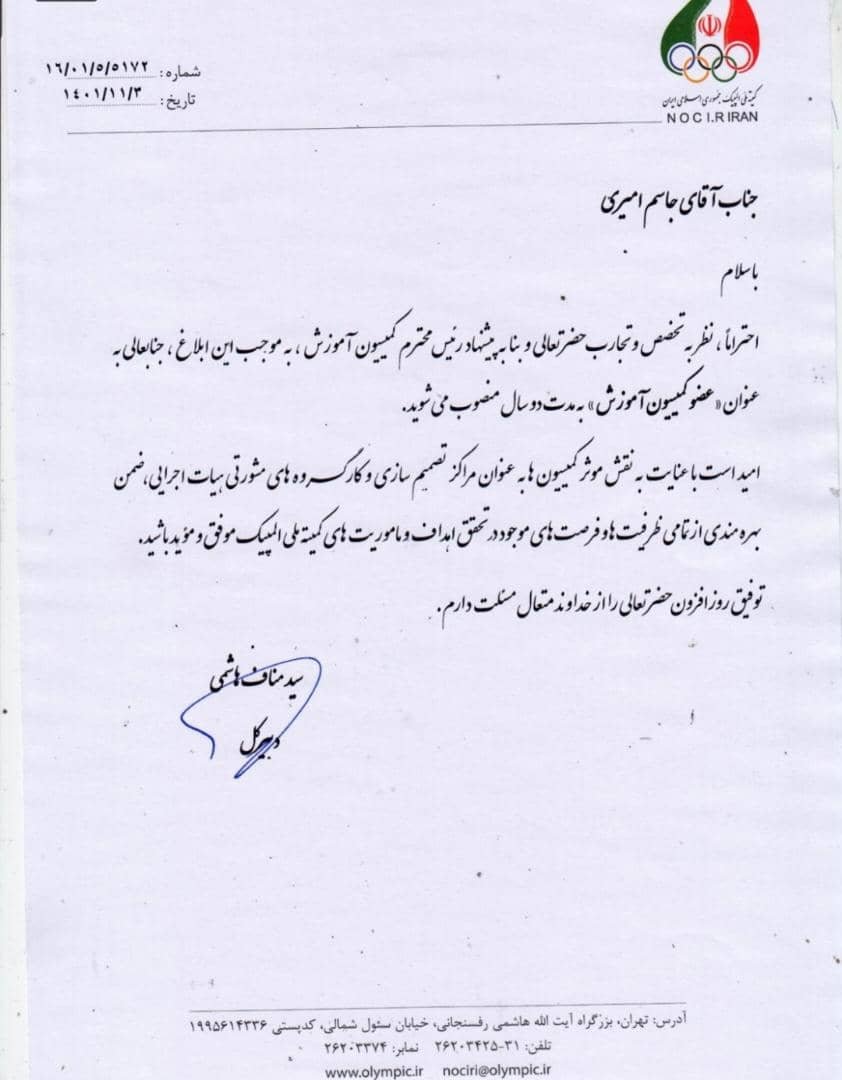 شماره: ۱۶/۰۱/۵/۵۱۷۲
تاریخ: ۱٤۰۱/۱۱/۳
کمیته ملی المپیک جمهوری اسلامی ایران
N O C I.R IRAN
جناب آقای جاسم امیری
باسلام
احتراماً، نظر به تخصص و تجارب حضرتعالی و بنا به پیشنهاد رئیس محترم کمیسیون آموزش، به موجب این ابلاغ، جنابعالی به
عنوان «عضو کمیسیون آموزش» به مدت دو سال منصوب می شوید.
امید است با عنایت به نقش موثر کمیسیون ها به عنوان مراکز تصمیم سازی و کارگروه های مشورتی هیات اجرایی، ضمن
بهره مندی از تمامی ظرفیت ها و فرصت های موجود در تحقق اهداف و ماموریت های کمیته ملی المپیک موفق و مؤید باشید.
توفیق روز افزون حضرتعالی را از خداوند متعال مسئلت دارم.
سید مناف هاشمی
دبیر کل
آدرس: تهران، بزرگراه آیت الله هاشمی رفسنجانی، خیابان سئول شمالی، کدپستی ۱۹۹۵۶۱۴۳۳۶
تلفن: ۳۱-۲۶۲۰۳۴۲۵ نمابر: ۲۶۲۰۳۳۷۴
www.olympic.ir nociri@olympic.ir